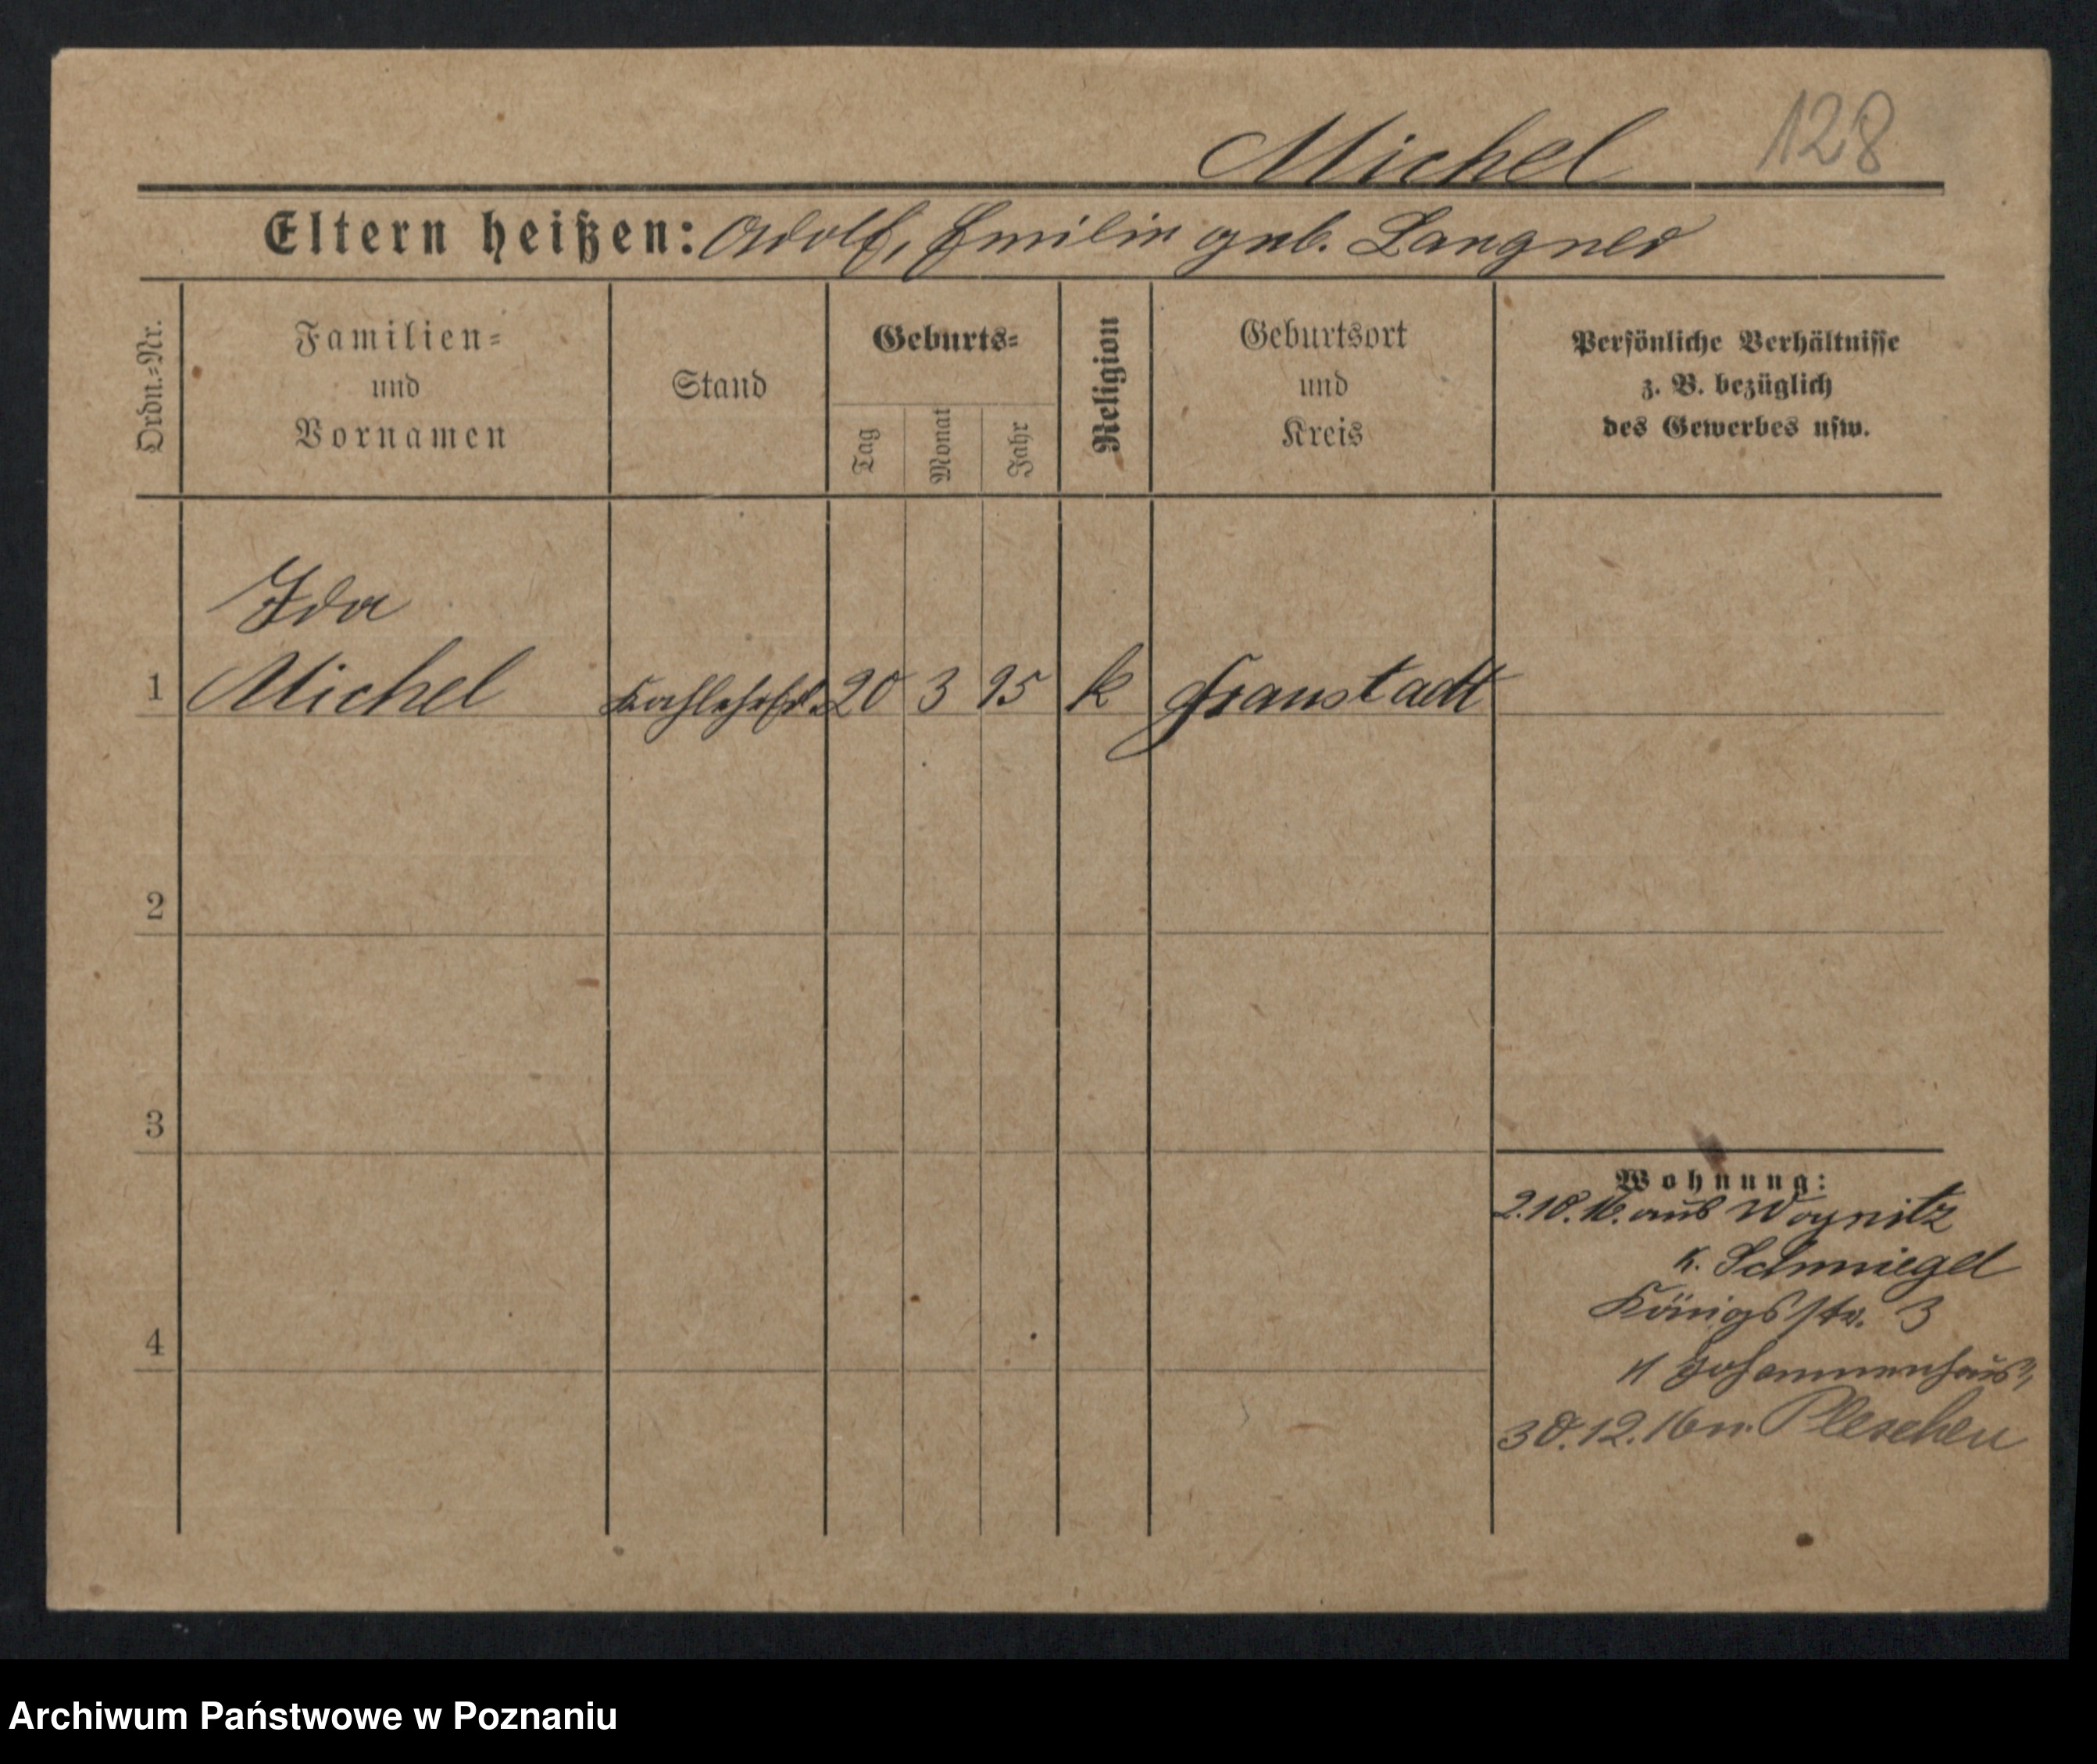 Michel 128
Eltern heißen: Adolf, Emilie geb. Langner
Ordn.-Nr.
Familien-
und
Vornamen
Stand
Geburts-
Tag
Monat
Jahr
Religion
Geburtsort
und
Kreis
Persönliche Verhältnisse
z. B. bezüglich
des Gewerbes usw.
Ida
1 Michel Kochlehrfrl. 20 3 95 k Fraustadt
2
3
4
Wohnung:
2.10.16. aus Woynitz
K. Schmiegel
Königsstr. 3
Johannenhaus
30.12.16 n. Pleschen
Archiwum Państwowe w Poznaniu